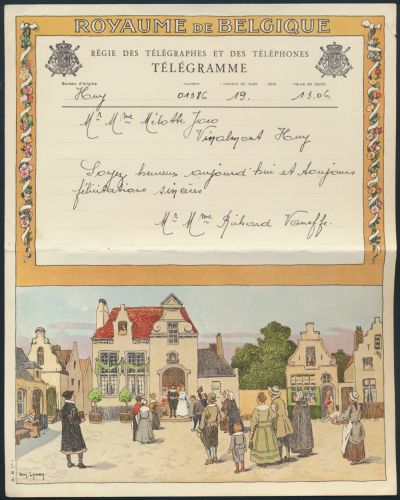 ROYAUME DE BELGIQUE
RÉGIE DES TÉLÉGRAPHES ET DES TÉLÉPHONES
TÉLÉGRAMME
Bureau d'origine - numéro - nombre de mots - date - heure de dépôt
Huy 01386 19. 13.06
Mr Mme Mélotte
Vinalmont Huy
Soyez heureux aujourd'hui et toujours
félicitations sincères
Mr Mme Richard Vaneffe.